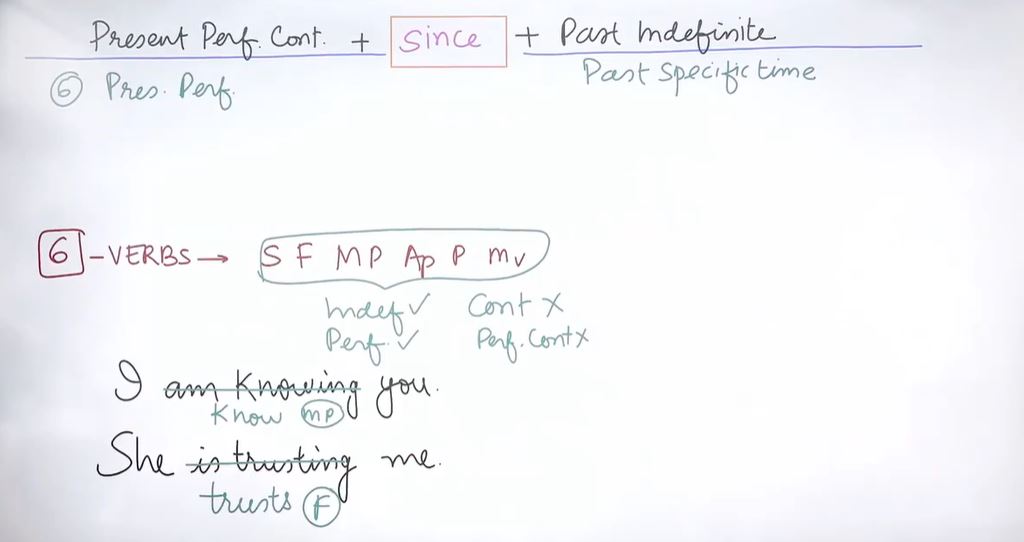 Present Perf. Cont. + Since + Past Indefinite
⑥ Pres. Perf. Past Specific time
6 -VERBS→ S F MP Ap P mv
Indef ✓ Cont X
Perf. ✓ Perf. Cont X
I am Knowing you.
Know MP
She is trusting me.
trusts F